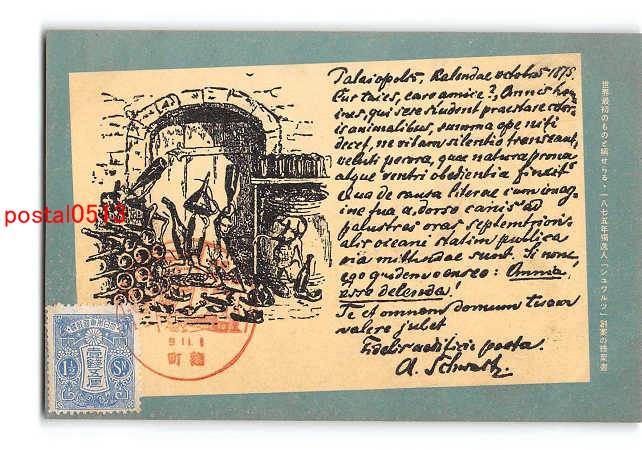 Palaiopolis, Kalendae octobres 1875.
Cur taces, care amice? Omnis ho
ines, qui sese student praestare ceter
is animalibus, summa ope niti
decet, ne vitam silentio transeant,
veluti pecora, quae natura prona
atque ventri obedientia finxit
Qua de causa literae cum imag
ine sua a dorso cariis ad
palustres oras septemtrion
alis oceani statim publica
via mittendae sunt. Si non,
ego quidem censeo: Omnia
esse delenda!
Te et omnem domum tuam
valere jubet
poeta.
A. Schwartz.
世界最初のものと稱せらる、一八七五年獨逸人「シュワルツ」創案の繪葉書
postal0513
9.11.1
麹町
壹錢五厘
1½ Sn